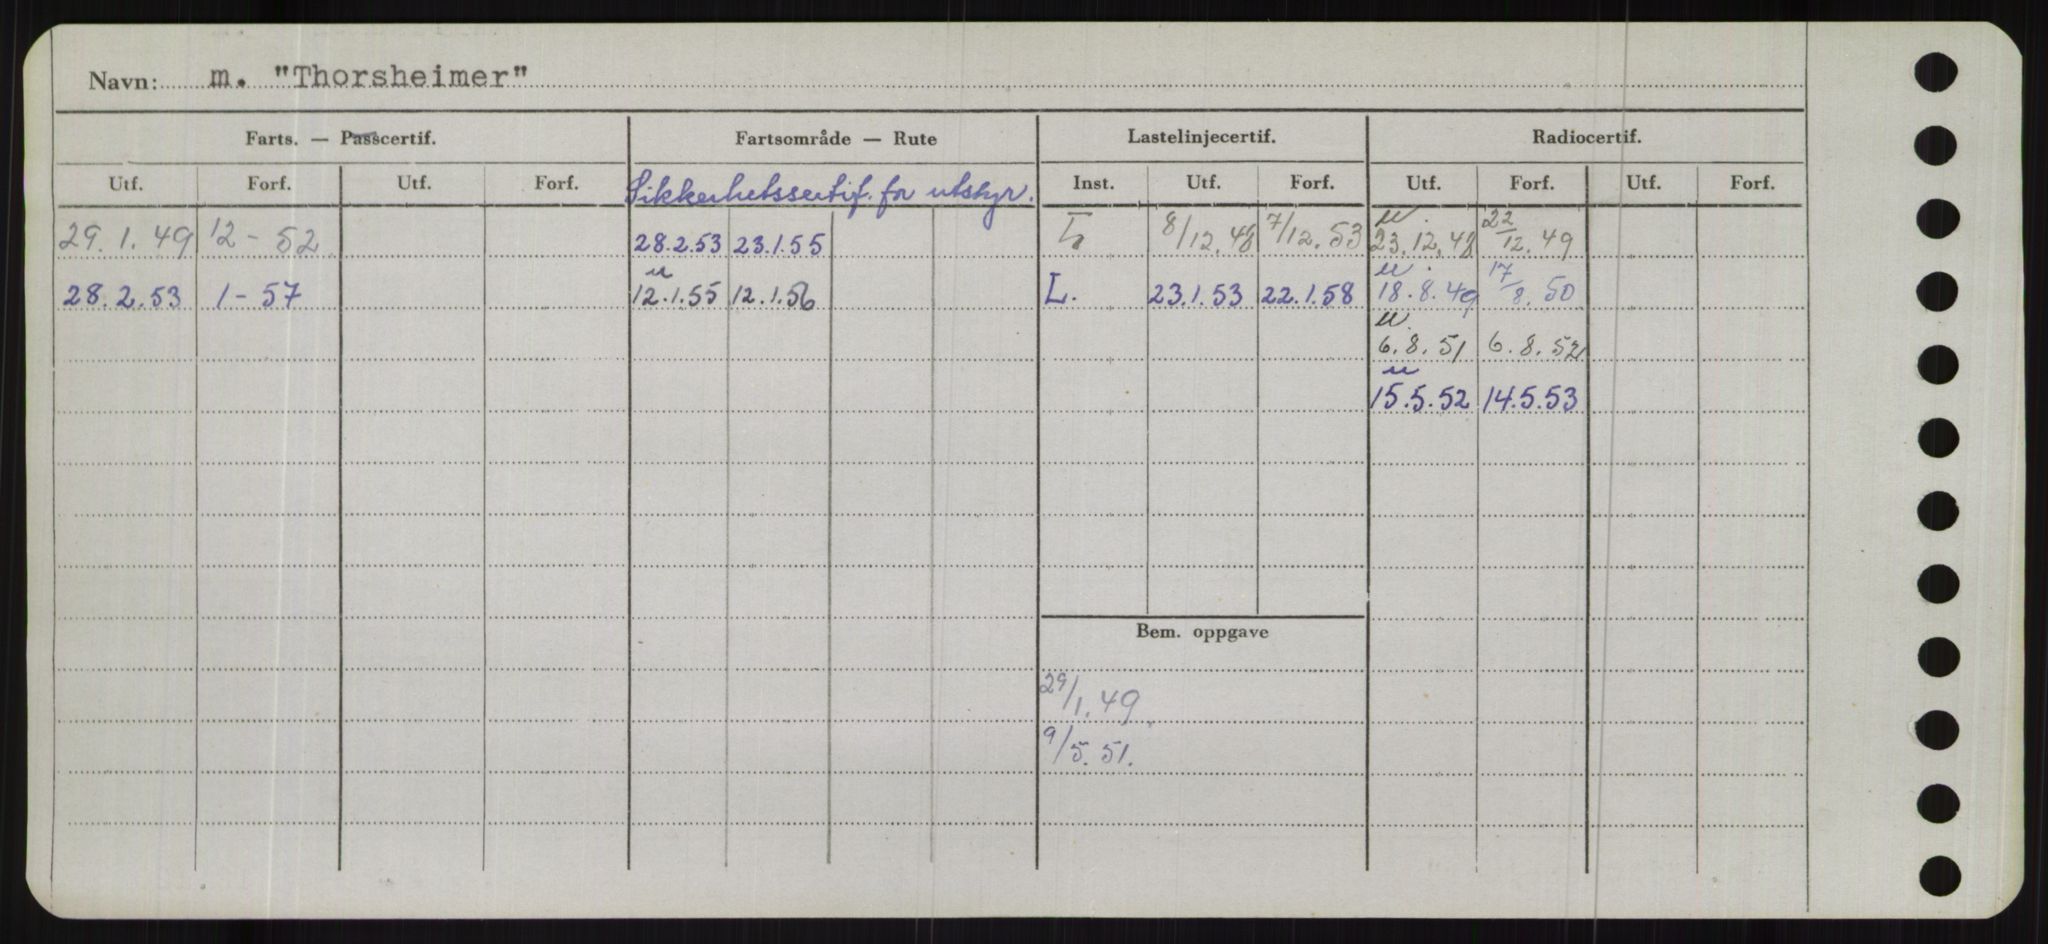 Navn: m. "Thorsheimer"
Farts. — Passcertif. Fartsområde — Rute Lastelinjecertif. Radiocertif.
Utf. Forf. Utf. Forf. Sikkerhetssertif. for utstyr. Inst. Utf. Forf. Utf. Forf. Utf. Forf.
29.1.49 12 - 52 28.2.53 23.1.55 8/12.48 7/12.53 u. 23.12.48 22/12.49
28.2.53 1 - 57 u 12.1.55 12.1.56 L. 23.1.53 22.1.58 u. 18.8.49 17/8.50
u. 6.8.51 6.8.52
u 15.5.52 14.5.53
Bem. oppgave
29/1.49
9/5.51.